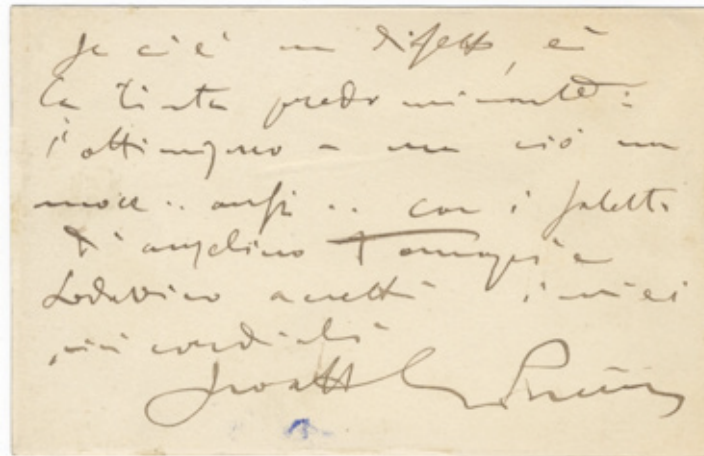 Se c'è un difetto, è
la tinta predominante:
l'ottimismo - ma ciò non
nuoce .. anzi .. con i saluti
di Angelino
Lodovico accetti i miei
più cordiali